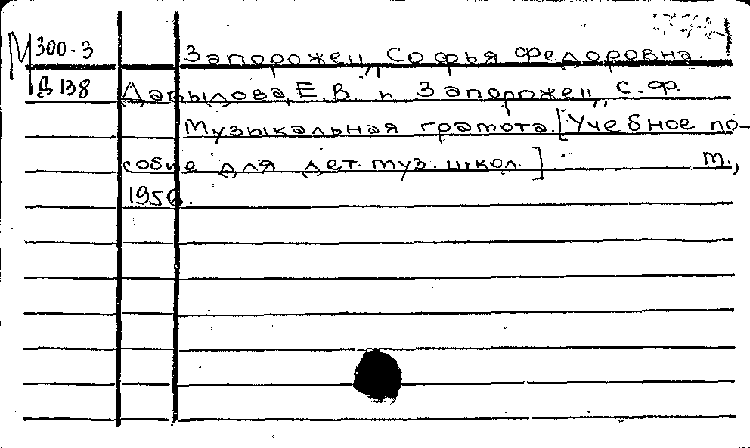 М 300-3 Запорожец, Софья Федоровна
Д 138 Давыдова, Е.В. и Запорожец, С.Ф.
Музыкальная грамота [Учебное по-
собие для дет. муз. школ.] М.,
1950.